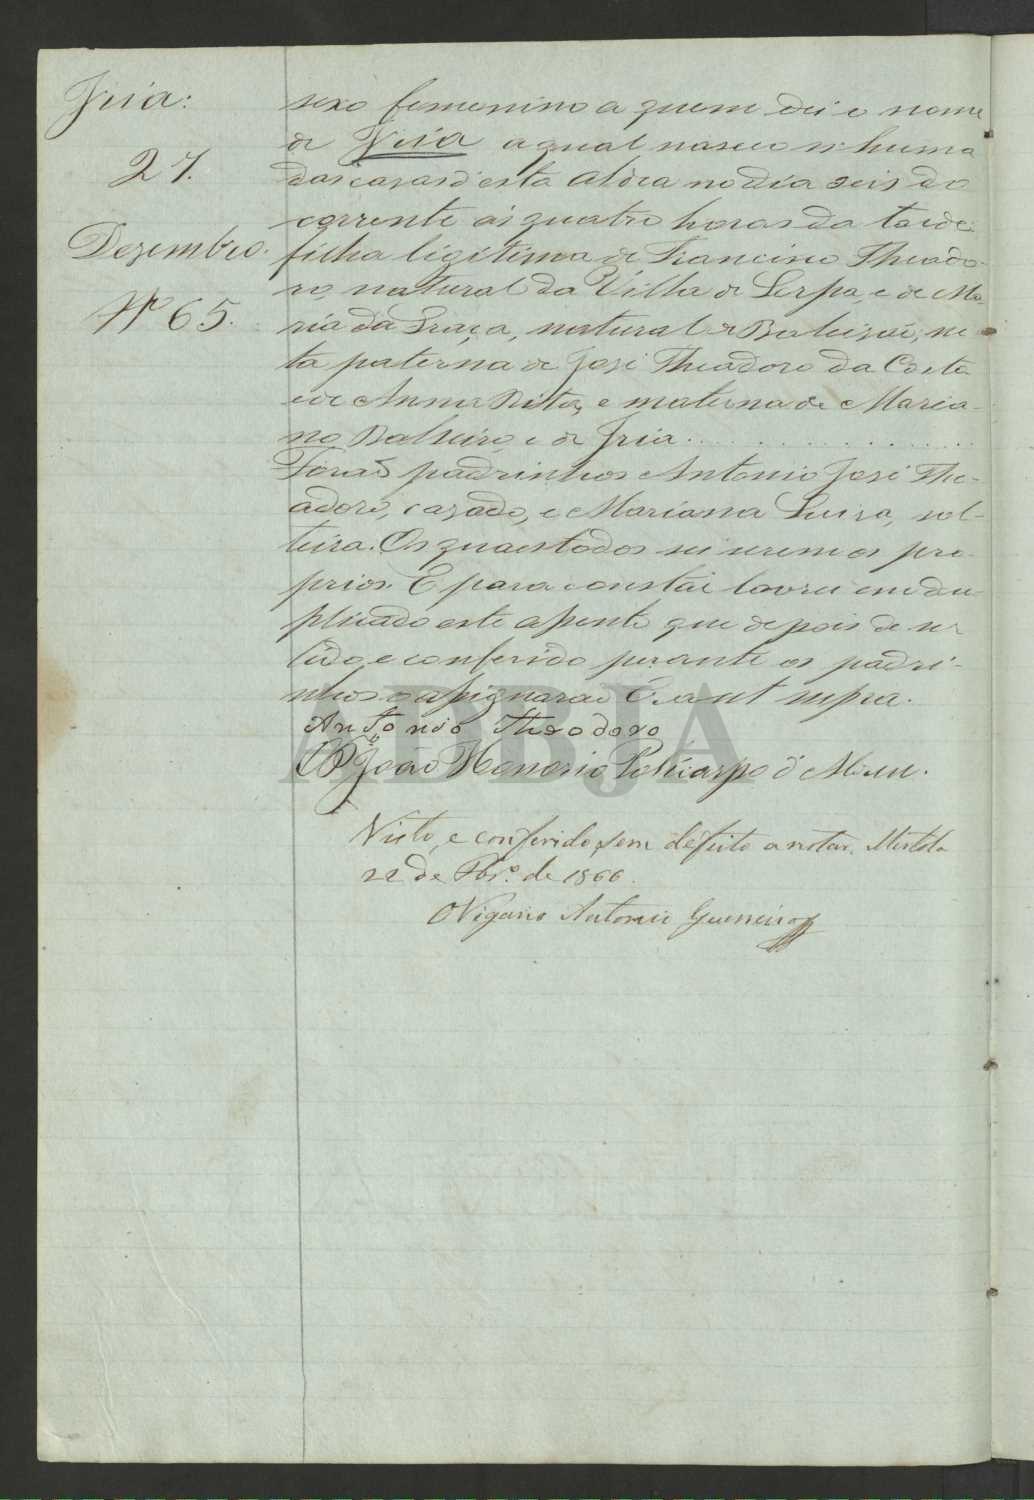 Iria:
27.
Dezembro.
Nº 65.
sexo femenino a quem dei o nome
de Iria a qual nasceo n'huma
das cazas d'esta Aldea no dia seis do
corrente ás quatro horas da tarde:
filha legitima de Francisco Theado-
ro, natural da Villa de Serpa, e de Ma-
ria da Graça, natural de Baleizaõ; ne-
ta paterna de José Theadoro da Costa
e de Anna Rita, e materna de Maria-
no Balheiro, e de Iria. . . . . . . . . . . . . . .
Foraõ padrinhos Antonio José The-
adoro, cazado, e Mariana Luiza, sol-
teira. Os quaes todos sei serem os pro-
prios. E para constar lavrei em du-
plicado este assento que depois de ser
lido e conferido perante os padri-
nhos o assignaraõ Era ut supra.
Antonio Theodoro
O P. João Honorio Policarpo d'
Visto, e conferido, sem defeito a notar. Mertola
22 de de 1866.
O Vigario Antonio Guerreiro
ADBJA